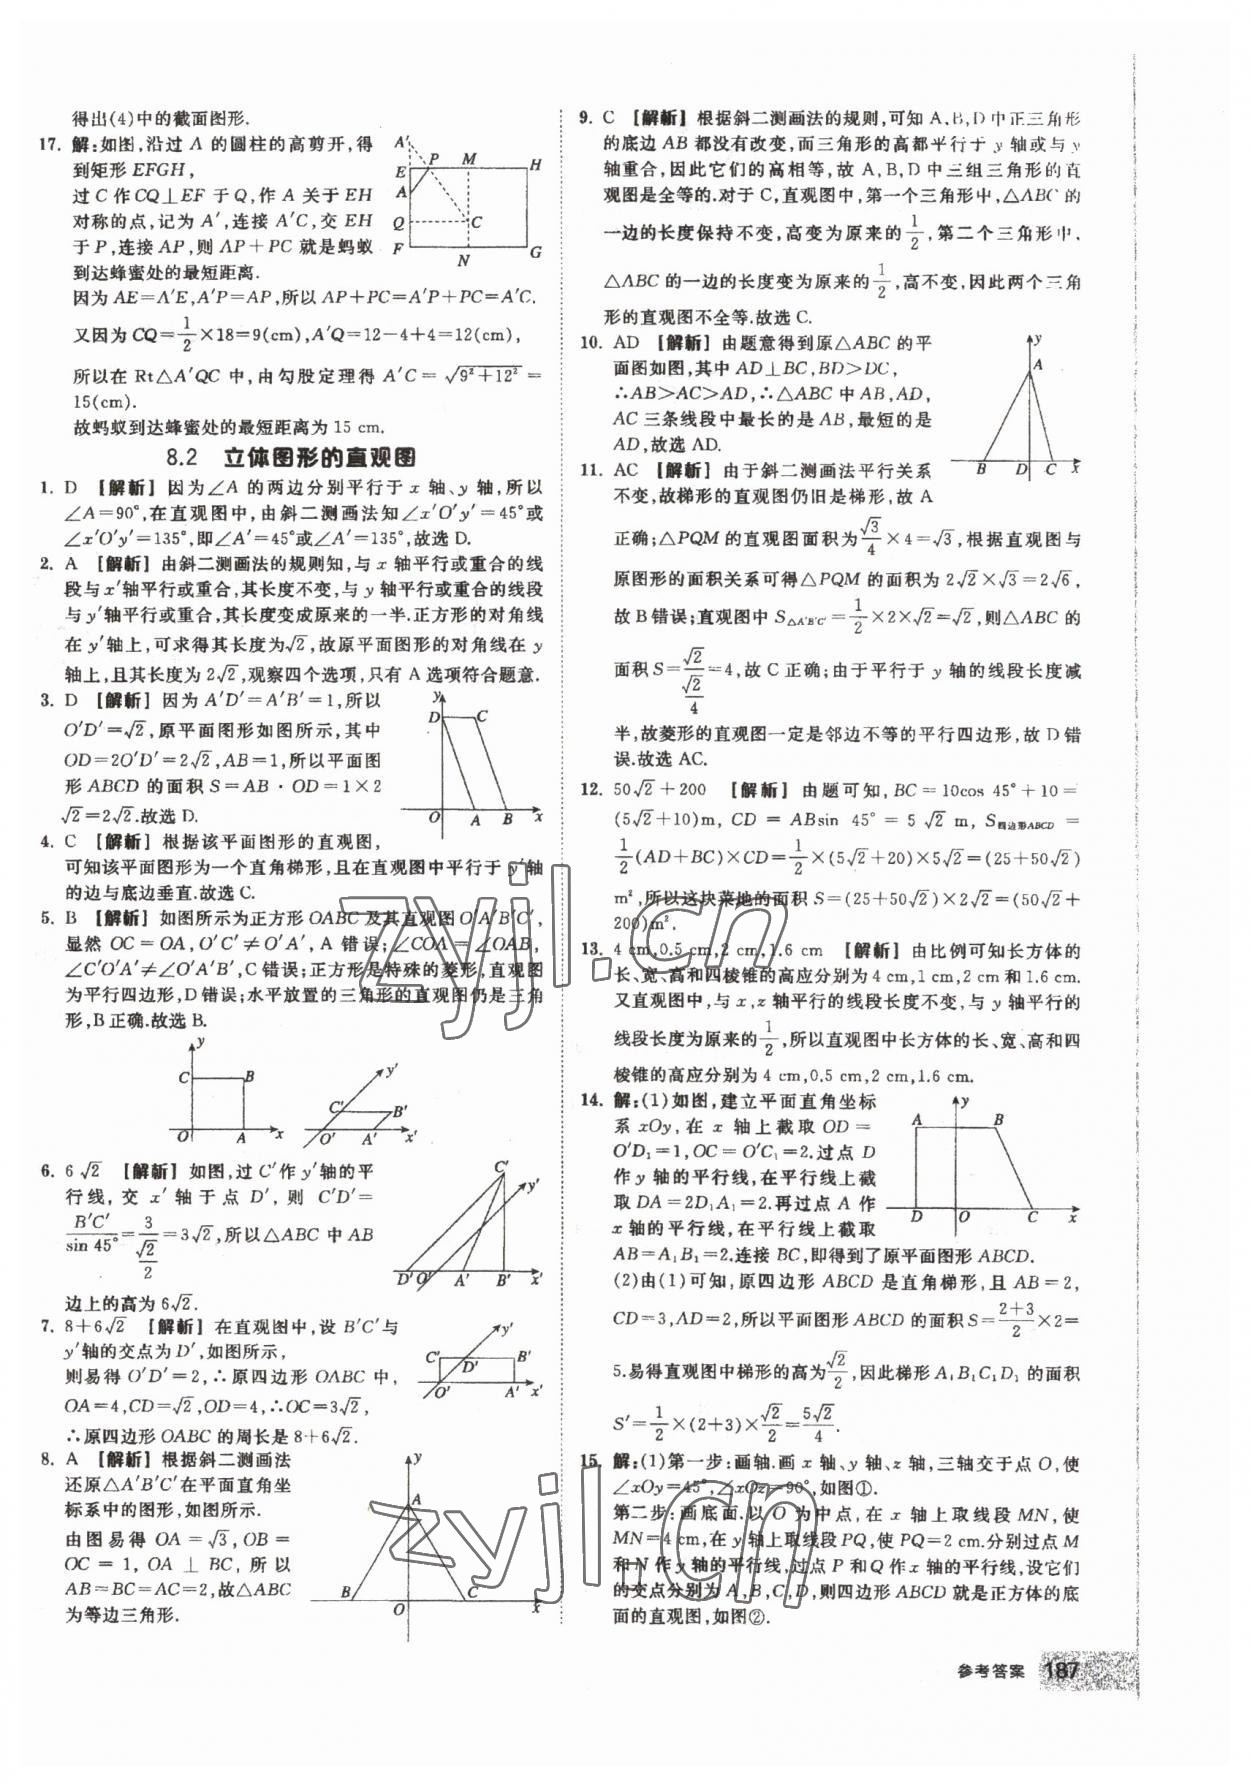 得出(4)中的截面图形.
17. 解:如图,沿过 A 的圆柱的高剪开,得
到矩形 EFGH,
过 C 作 CQ⊥EF 于 Q,作 A 关于 EH
对称的点,记为 A′,连接 A′C,交 EH
于 P,连接 AP,则 AP+PC 就是蚂蚁
到达蜂蜜处的最短距离.
因为 AE=A′E,A′P=AP,所以 AP+PC=A′P+PC=A′C.
又因为 CQ=1/2×18=9(cm),A′Q=12−4+4=12(cm),
所以在 Rt△A′QC 中,由勾股定理得 A′C=√(9²+12²)=
15(cm).
故蚂蚁到达蜂蜜处的最短距离为 15 cm.
A′ P M H E A Q C F N G
8.2 立体图形的直观图
1. D 【解析】因为∠A 的两边分别平行于 x 轴、y 轴,所以
∠A=90°,在直观图中,由斜二测画法知∠x′O′y′=45°或
∠x′O′y′=135°,即∠A′=45°或∠A′=135°,故选 D.
2. A 【解析】由斜二测画法的规则知,与 x 轴平行或重合的线
段与 x′轴平行或重合,其长度不变,与 y 轴平行或重合的线段
与 y′轴平行或重合,其长度变成原来的一半.正方形的对角线
在 y′轴上,可求得其长度为√2,故原平面图形的对角线在 y
轴上,且其长度为 2√2,观察四个选项,只有 A 选项符合题意.
3. D 【解析】因为 A′D′=A′B′=1,所以
O′D′=√2,原平面图形如图所示,其中
OD=2O′D′=2√2,AB=1,所以平面图
形 ABCD 的面积 S=AB·OD=1×2
√2=2√2.故选 D.
y D C O A B x
4. C 【解析】根据该平面图形的直观图,
可知该平面图形为一个直角梯形,且在直观图中平行于 y′轴
的边与底边垂直.故选 C.
5. B 【解析】如图所示为正方形 OABC 及其直观图 O′A′B′C′,
显然 OC=OA,O′C′≠O′A′,A 错误;∠COA=∠OAB,
∠C′O′A′≠∠O′A′B′,C 错误;正方形是特殊的菱形,直观图
为平行四边形,D 错误;水平放置的三角形的直观图仍是三角
形,B 正确.故选 B.
y C B O A x
y′ C′ B′ O′ A′ x′
6. 6√2 【解析】如图,过 C′作 y′轴的平
行线,交 x′轴于点 D′,则 C′D′=
B′C′/sin 45°=3/(√2/2)=3√2,所以△ABC 中 AB
边上的高为 6√2.
C′ y′ D′ O′ A′ B′ x′
7. 8+6√2 【解析】在直观图中,设 B′C′与
y′轴的交点为 D′,如图所示,
则易得 O′D′=2,∴原四边形 OABC 中,
OA=4,CD=√2,OD=4,∴OC=3√2,
∴原四边形 OABC 的周长是 8+6√2.
y′ C′ D′ B′ O′ A′ x′
8. A 【解析】根据斜二测画法
还原△A′B′C′在平面直角坐
标系中的图形,如图所示.
由图易得 OA=√3,OB=
OC=1,OA⊥BC,所以
AB=BC=AC=2,故△ABC
为等边三角形.
y A B O C x
9. C 【解析】根据斜二测画法的规则,可知 A,B,D 中正三角形
的底边 AB 都没有改变,而三角形的高都平行于 y 轴或与 y
轴重合,因此它们的高相等,故 A,B,D 中三组三角形的直
观图是全等的.对于 C,直观图中,第一个三角形中,△ABC 的
一边的长度保持不变,高变为原来的1/2,第二个三角形中,
△ABC 的一边的长度变为原来的1/2,高不变,因此两个三角
形的直观图不全等.故选 C.
10. AD 【解析】由题意得到原△ABC 的平
面图如图,其中 AD⊥BC,BD>DC,
∴AB>AC>AD,∴△ABC 中 AB,AD,
AC 三条线段中最长的是 AB,最短的是
AD,故选 AD.
y A B D C x
11. AC 【解析】由于斜二测画法平行关系
不变,故梯形的直观图仍旧是梯形,故 A
正确;△PQM 的直观图面积为√3/4×4=√3,根据直观图与
原图形的面积关系可得△PQM 的面积为 2√2×√3=2√6,
故 B 错误;直观图中 S△A′B′C′=1/2×2×√2=√2,则△ABC 的
面积 S=√2/(√2/4)=4,故 C 正确;由于平行于 y 轴的线段长度减
半,故菱形的直观图一定是邻边不等的平行四边形,故 D 错
误.故选 AC.
12. 50√2+200 【解析】由题可知,BC=10cos 45°+10=
(5√2+10)m,CD=ABsin 45°=5√2 m,S四边形ABCD=
1/2(AD+BC)×CD=1/2×(5√2+20)×5√2=(25+50√2)
m²,所以这块菜地的面积 S=(25+50√2)×2√2=(50√2+
200)m².
13. 4 cm,0.5 cm,2 cm,1.6 cm 【解析】由比例可知长方体的
长、宽、高和四棱锥的高应分别为 4 cm,1 cm,2 cm 和 1.6 cm.
又直观图中,与 x,z 轴平行的线段长度不变,与 y 轴平行的
线段长度为原来的1/2,所以直观图中长方体的长、宽、高和四
棱锥的高应分别为 4 cm,0.5 cm,2 cm,1.6 cm.
14. 解:(1)如图,建立平面直角坐标
系 xOy,在 x 轴上截取 OD=
O′D₁=1,OC=O′C₁=2.过点 D
作 y 轴的平行线,在平行线上截
取 DA=2D₁A₁=2.再过点 A 作
x 轴的平行线,在平行线上截取
AB=A₁B₁=2.连接 BC,即得到了原平面图形 ABCD.
(2)由(1)可知,原四边形 ABCD 是直角梯形,且 AB=2,
CD=3,AD=2,所以平面图形 ABCD 的面积 S=(2+3)/2×2=
5.易得直观图中梯形的高为√2/2,因此梯形 A₁B₁C₁D₁ 的面积
S′=1/2×(2+3)×√2/2=5√2/4.
y A B D O C x
15. 解:(1)第一步:画轴.画 x 轴、y 轴、z 轴,三轴交于点 O,使
∠xOy=45°,∠xOz=90°,如图①.
第二步:画底面.以 O 为中点,在 x 轴上取线段 MN,使
MN=4 cm,在 y 轴上取线段 PQ,使 PQ=2 cm.分别过点 M
和 N 作 y 轴的平行线,过点 P 和 Q 作 x 轴的平行线,设它们
的交点分别为 A,B,C,D,则四边形 ABCD 就是正方体的底
面的直观图,如图②.
zyjl.cn
zyjl.cn
参考答案 187